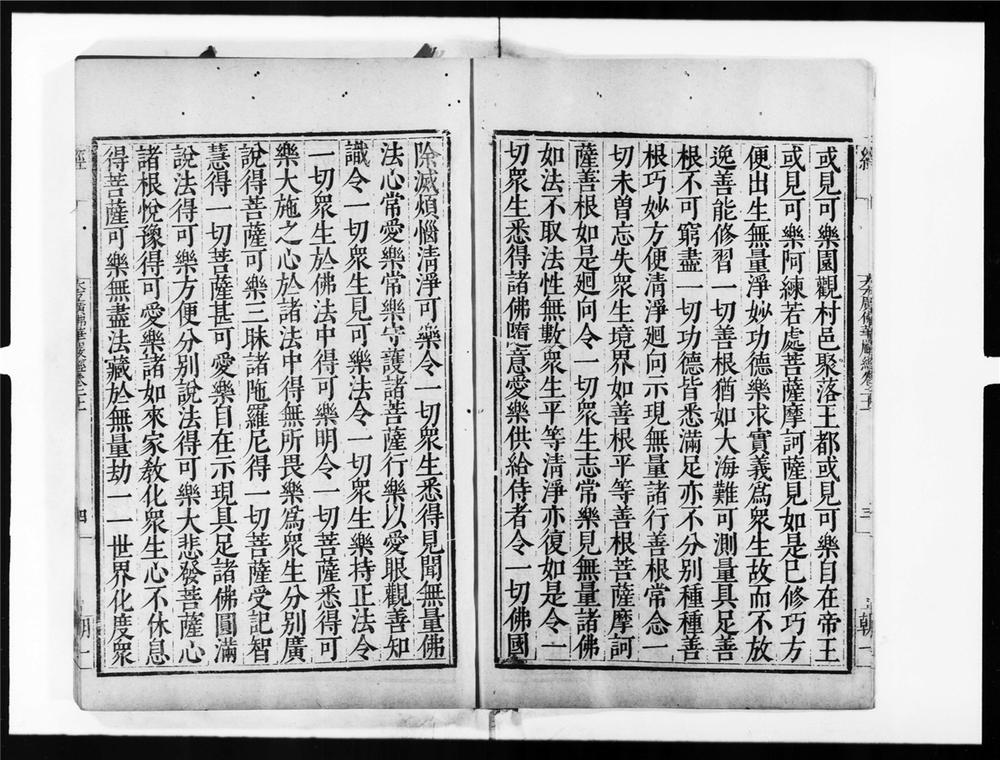 或見可樂園觀村邑聚落王都或見可樂自在帝王
或見可樂阿練若處菩薩摩訶薩見如是已修巧方
便出生無量淨妙功德樂求實義爲衆生故而不放
逸善能修習一切善根猶如大海難可測量具足善
根不可窮盡一切功德皆悉滿足亦不分别種種善
根巧妙方便清淨廻向示現無量諸行善根常念一
切未曽忘失衆生境界如善根平等善根菩薩摩訶
薩善根如是廻向令一切衆生志常樂見無量諸佛
如法不取法性無數衆生平等清淨亦復如是令一
切衆生悉得諸佛隨意愛樂供給侍者令一切佛國
除滅煩惱清淨可樂令一切衆生悉得見聞無量佛
法心常愛樂常樂守護諸菩薩行樂以愛眼觀善知
識令一切衆生見可樂法令一切衆生樂持正法令
一切衆生於佛法中得可樂明令一切菩薩悉得可
樂大施之心於諸法中得無所畏樂爲衆生分别廣
說得菩薩可樂三昧諸陁羅尼得一切菩薩受記智
慧得一切菩薩甚可愛樂自在示現具足諸佛圓滿
說法得可樂方便分别說法得可樂大悲發菩薩心
諸根悅豫得可愛樂諸如來家教化衆生心不休息
得菩薩可樂無盡法藏於無量劫一一世界化度衆
經
四
朝一
三
朝一